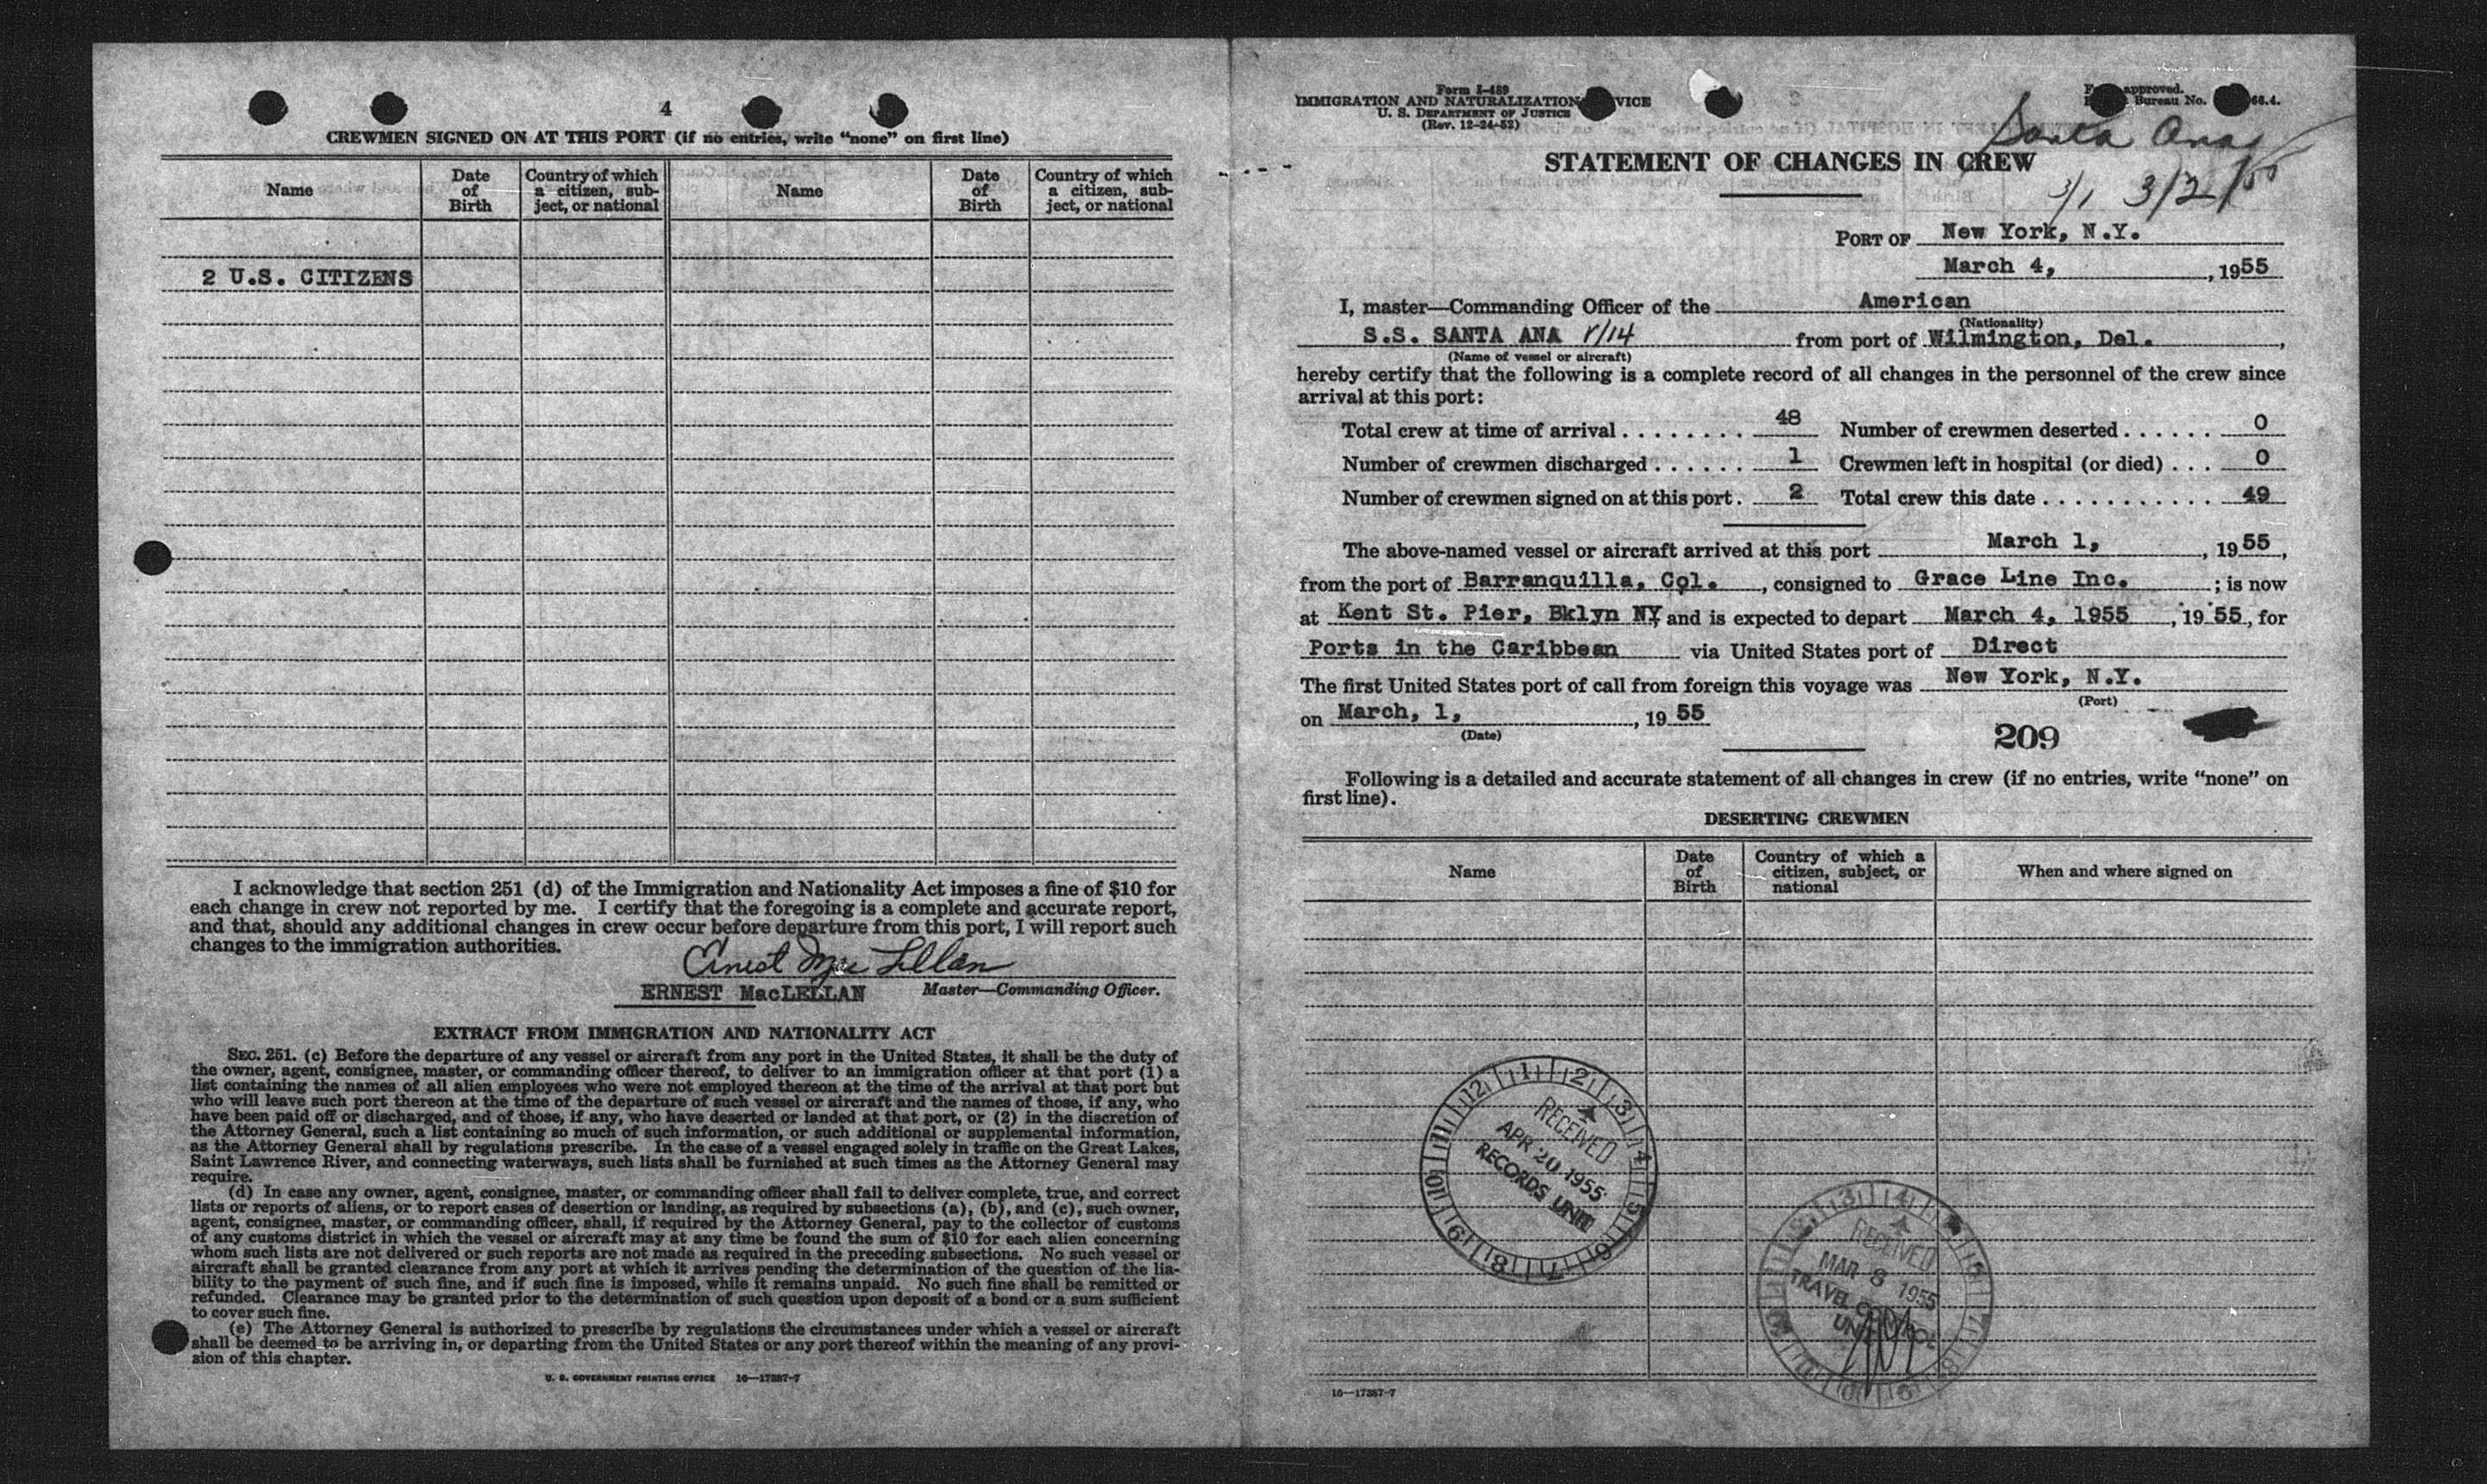 4
CREWMEN SIGNED ON AT THIS PORT (if no entries, write “none” on first line)
Name
Date of Birth
Country of which a citizen, sub-ject, or national
Name
Date of Birth
Country of which a citizen, sub-ject, or national
2 U.S. CITIZENS
I acknowledge that section 251 (d) of the Immigration and Nationality Act imposes a fine of $10 for
each change in crew not reported by me. I certify that the foregoing is a complete and accurate report,
and that, should any additional changes in crew occur before departure from this port, I will report such
changes to the immigration authorities.
Ernest MacLellan
ERNEST MacLELLAN Master—Commanding Officer.
EXTRACT FROM IMMIGRATION AND NATIONALITY ACT
SEC. 251. (c) Before the departure of any vessel or aircraft from any port in the United States, it shall be the duty of
the owner, agent, consignee, master, or commanding officer thereof, to deliver to an immigration officer at that port (1) a
list containing the names of all alien employees who were not employed thereon at the time of the arrival at that port but
who will leave such port thereon at the time of the departure of such vessel or aircraft and the names of those, if any, who
have been paid off or discharged, and of those, if any, who have deserted or landed at that port, or (2) in the discretion of
the Attorney General, such a list containing so much of such information, or such additional or supplemental information,
as the Attorney General shall by regulations prescribe. In the case of a vessel engaged solely in traffic on the Great Lakes,
Saint Lawrence River, and connecting waterways, such lists shall be furnished at such times as the Attorney General may
require.
(d) In case any owner, agent, consignee, master, or commanding officer shall fail to deliver complete, true, and correct
lists or reports of aliens, or to report cases of desertion or landing, as required by subsections (a), (b), and (c), such owner,
agent, consignee, master, or commanding officer, shall, if required by the Attorney General, pay to the collector of customs
of any customs district in which the vessel or aircraft may at any time be found the sum of $10 for each alien concerning
whom such lists are not delivered or such reports are not made as required in the preceding subsections. No such vessel or
aircraft shall be granted clearance from any port at which it arrives pending the determination of the question of the lia-
bility to the payment of such fine, and if such fine is imposed, while it remains unpaid. No such fine shall be remitted or
refunded. Clearance may be granted prior to the determination of such question upon deposit of a bond or a sum sufficient
to cover such fine.
(e) The Attorney General is authorized to prescribe by regulations the circumstances under which a vessel or aircraft
shall be deemed to be arriving in, or departing from the United States or any port thereof within the meaning of any provi-
sion of this chapter.
U. S. GOVERNMENT PRINTING OFFICE 16—17387-7
Form I-489
IMMIGRATION AND NATURALIZATION VICE
U. S. DEPARTMENT OF JUSTICE
(Rev. 12-24-52)
approved.
Bureau No. 66.4.
Santa Ana
3/1 3/2/55
STATEMENT OF CHANGES IN CREW
PORT OF New York, N.Y.
March 4, , 1955
I, master—Commanding Officer of the American
(Nationality)
S.S. SANTA ANA V/14 from port of Wilmington, Del. ,
(Name of vessel or aircraft)
hereby certify that the following is a complete record of all changes in the personnel of the crew since
arrival at this port:
Total crew at time of arrival . . . . . . . . 48 Number of crewmen deserted . . . . . . 0
Number of crewmen discharged . . . . . . 1 Crewmen left in hospital (or died) . . . 0
Number of crewmen signed on at this port . 2 Total crew this date . . . . . . . . . . . 49
The above-named vessel or aircraft arrived at this port March 1, , 19 55 ,
from the port of Barranquilla, Col. , consigned to Grace Line Inc. ; is now
at Kent St. Pier, Bklyn NY and is expected to depart March 4, 1955 , 19 55 , for
Ports in the Caribbean via United States port of Direct
The first United States port of call from foreign this voyage was New York, N.Y.
(Port)
on March, 1, , 19 55
(Date)
209
Following is a detailed and accurate statement of all changes in crew (if no entries, write “none” on
first line).
DESERTING CREWMEN
Name
Date of Birth
Country of which a citizen, subject, or national
When and where signed on
12 1 2 3 4 5 6 7 8 9 10 11
RECEIVED
APR 20 1955
RECORDS UNIT
RECEIVED
MAR 8 1955
TRAVEL CONTROL
UNIT
16—17387-7